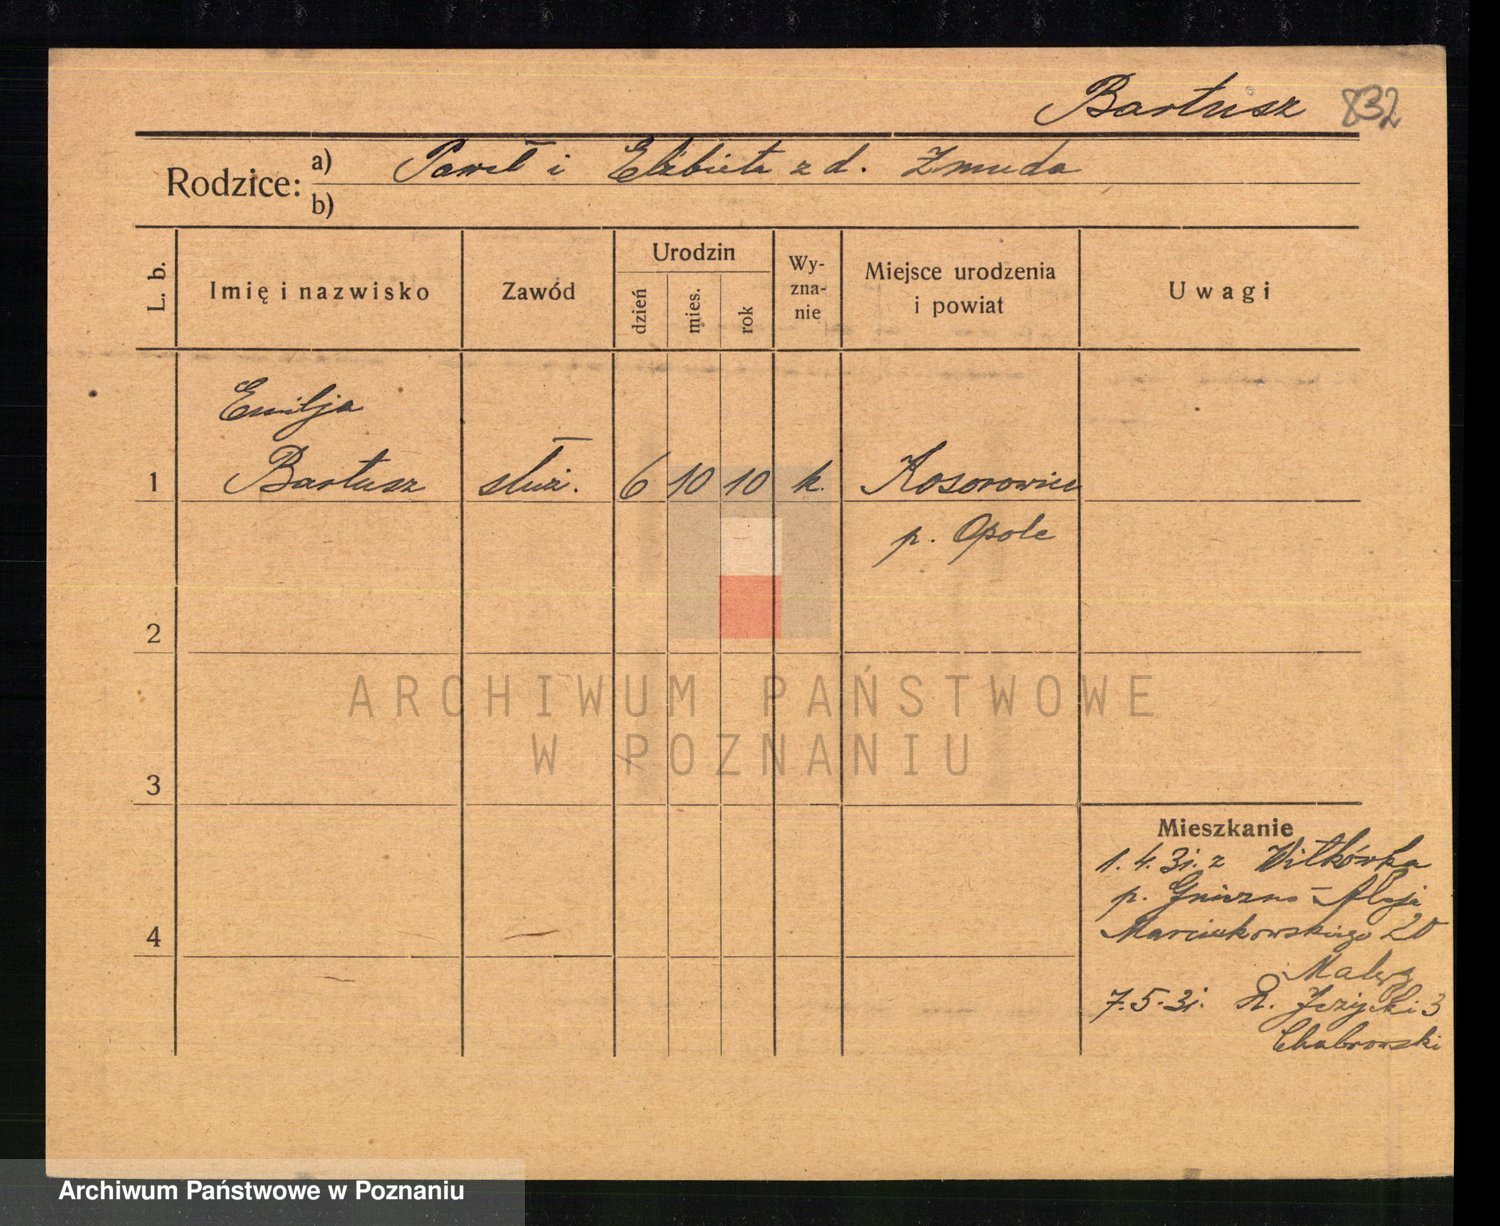 Bartusz 832
Rodzice: a) Paweł i Elżbieta z d. Żmuda
b)
L. b. Imię i nazwisko Zawód Urodzin dzień mies. rok Wy-zna-nie Miejsce urodzenia i powiat Uwagi
Emilja
1 Bartusz służ. 6 10 10 k. Kosorowice
p. Opole
2
ARCHIWUM PAŃSTWOWE
W POZNANIU
3
Mieszkanie
1.4.31. z Witkówka
p. Gniezno - Aleje
4 Marcinkowskiego 20
7.5.31. R. Jeżycki 3
Chabrowski
Archiwum Państwowe w Poznaniu